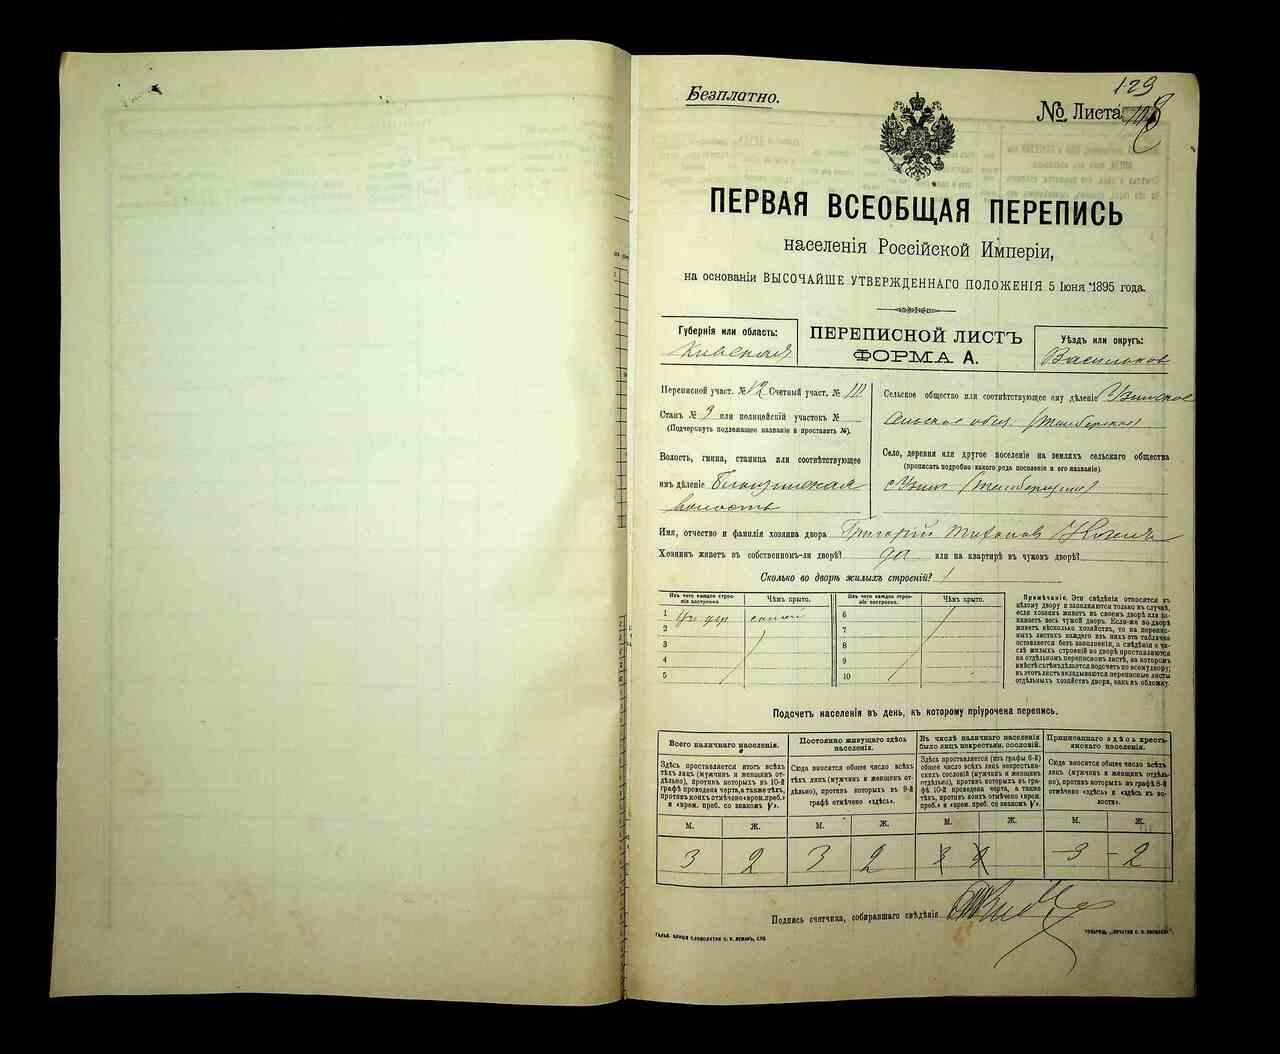 129
Безплатно.
№ Листа
ПЕРВАЯ ВСЕОБЩАЯ ПЕРЕПИСЬ
населенія Россійской Имперіи,
на основаніи ВЫСОЧАЙШЕ УТВЕРЖДЕННАГО ПОЛОЖЕНІЯ 5 Іюня 1895 года.
Губернія или область:
Кіевская
ПЕРЕПИСНОЙ ЛИСТЪ
ФОРМА А.
Уѣздъ или округъ:
Васильков
Переписной участ. № 12 Счетный участ. № III
Станъ № 3 или полицейскій участокъ №
(Подчеркнуть подлежащее названіе и проставить №).
Волость, гмина, станица или соотвѣтствующее
имъ дѣленіе
волость
Сельское общество или соотвѣтствующее ему дѣленіе
сельское общ.
Село, деревня или другое поселеніе на земляхъ сельскаго общества
(прописать подробно какого рода поселеніе и его названіе).
Имя, отчество и фамилія хозяина двора Григорій Тихонов
Хозяинъ живетъ въ собственномъ-ли дворѣ? да или на квартирѣ въ чужомъ дворѣ?
Сколько во дворѣ жилыхъ строеній? 1
Изъ чего каждое строеніе построено. Чѣмъ крыто. Изъ чего каждое строеніе построено. Чѣмъ крыто.
1 6
2 7
3 8
4 9
5 10
Примѣчаніе. Эти свѣдѣнія относятся къ
цѣлому двору и заполняются только въ случаѣ,
если хозяинъ живетъ въ своемъ дворѣ или занимаетъ
весь чужой дворъ. Если-же во дворѣ
живетъ нѣсколько хозяйствъ, то на переписныхъ
листахъ каждаго изъ нихъ эта табличка
оставляется безъ заполненія, а свѣдѣнія о числѣ
жилыхъ строеній во дворѣ проставляются
на отдѣльномъ переписномъ листѣ, на которомъ
вмѣстѣ съ тѣмъ дѣлается подсчетъ по всему двору;
въ этотъ листъ вкладываются переписные листы
отдѣльныхъ хозяйствъ двора, какъ въ обложку.
Подсчетъ населенія въ день, къ которому пріурочена перепись.
Всего наличнаго населенія.
Здѣсь проставляется итогъ всѣхъ
тѣхъ лицъ (мужчинъ и женщинъ отдѣльно),
противъ которыхъ въ 10-й
графѣ проведена черта, а также тѣхъ,
противъ коихъ отмѣчено «врем. преб.»
и «врем. преб. со знакомъ V».
Постоянно живущаго здѣсь
населенія.
Сюда вносится общее число всѣхъ
тѣхъ лицъ (мужчинъ и женщинъ отдѣльно),
противъ которыхъ въ 9-й
графѣ отмѣчено «здѣсь».
Въ числѣ наличнаго населенія
было лицъ некрестьян. сословій.
Здѣсь проставляется (изъ графы 6-й)
общее число всѣхъ лицъ некрестьянскихъ
сословій (мужчинъ и женщинъ
отдѣльно), противъ которыхъ въ графѣ
10-й проведена черта, а также
тѣхъ, противъ коихъ отмѣчено «врем.
преб.» и «врем. преб. со знакомъ V».
Приписаннаго здѣсь крестьянскаго
населенія.
Сюда вносится общее число всѣхъ
лицъ (мужчинъ и женщинъ отдѣльно),
противъ которыхъ въ графѣ 8-й
отмѣчено «здѣсь» и «здѣсь въ волости».
М. Ж. М. Ж. М. Ж. М. Ж.
3 2 3 2 3 2
Подпись счетчика, собиравшаго свѣдѣнія